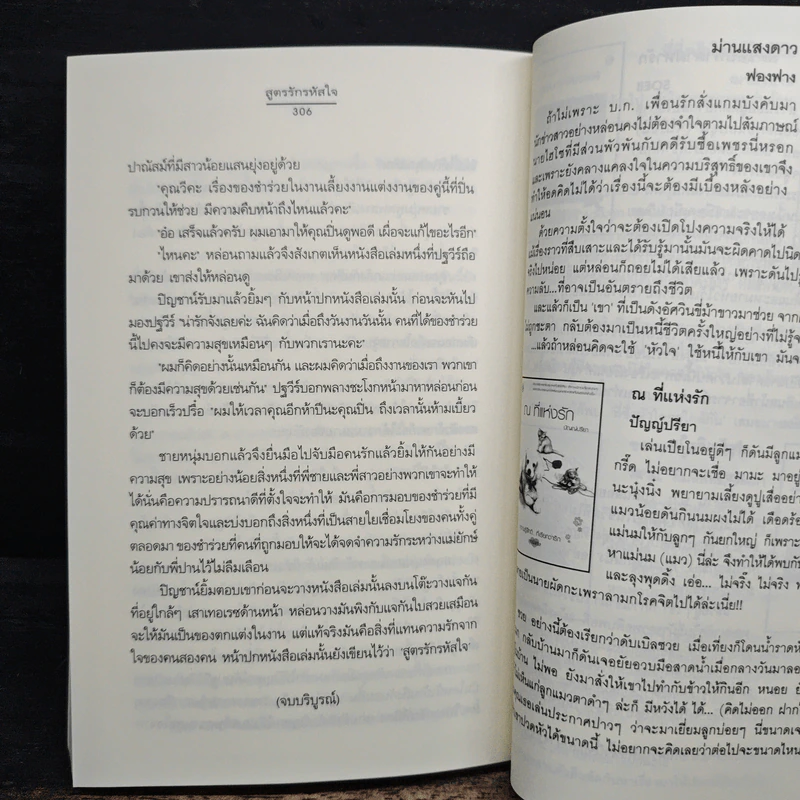 สูตรรักรหัสใจ
306
ปาณัสม์ที่มีสาวน้อยแสนยุ่งอยู่ด้วย
"คุณวีคะ เรื่องของชำร่วยในงานเลี้ยงงานแต่งงานของคู่นี้ที่ปิ่น
รบกวนให้ช่วย มีความคืบหน้าถึงไหนแล้วคะ"
"อ๋อ เสร็จแล้วครับ ผมเอามาให้คุณปิ่นดูพอดี เผื่อจะแก้ไขอะไรอีก"
"ไหนคะ" หล่อนถามแล้วจึงสังเกตเห็นหนังสือเล่มหนึ่งที่ปฐวีร์ถือ
มาด้วย เขาส่งให้หล่อนดู
ปิญชาน์รับมาแล้วยิ้มๆ กับหน้าปกหนังสือเล่มนั้น ก่อนจะหันไป
มองปฐวีร์ "น่ารักจังเลยค่ะ ฉันคิดว่าเมื่อถึงวันงานวันนั้น คนที่ได้ของชำร่วย
นี้ไปคงจะมีความสุขเหมือนๆ กับพวกเรานะคะ"
"ผมก็คิดอย่างนั้นเหมือนกัน และผมคิดว่าเมื่อถึงงานของเรา พวกเขา
ก็ต้องมีความสุขด้วยเช่นกัน" ปฐวีร์บอกพลางชะโงกหน้ามาหาหล่อนก่อน
จะบอกเร็วปรื๋อ "ผมให้เวลาคุณอีกห้าปีนะคุณปิ่น ถึงเวลานั้นห้ามเบี้ยว
ด้วย"
ชายหนุ่มบอกแล้วจึงยื่นมือไปจับมือคนรักแล้วยิ้มให้กันอย่างมี
ความสุข เพราะอย่างน้อยสิ่งหนึ่งที่พี่ชายและพี่สาวอย่างพวกเขาจะทำให้
ได้นั่นคือความปรารถนาดีที่ตั้งใจจะทำให้ มันคือการมอบของชำร่วยที่มี
คุณค่าทางจิตใจและบ่งบอกถึงสิ่งหนึ่งที่เป็นสายใยเชื่อมโยงของคนทั้งคู่
ตลอดมา ของชำร่วยที่คนที่ถูกมอบให้จะได้จดจำความรักระหว่างแม่ยักษ์
น้อยกับพี่ปานไว้ไม่ลืมเลือน
ปิญชาน์ยิ้มตอบเขาก่อนจะวางหนังสือเล่มนั้นลงบนโต๊ะวางแจกัน
ที่อยู่ใกล้ๆ เสาเทอเรซด้านหน้า หล่อนวางมันพิงกับแจกันใบสวยเสมือน
จะให้มันเป็นของตกแต่งในงาน แต่แท้จริงมันคือสิ่งที่แทนความรักจาก
ใจของคนสองคน หน้าปกหนังสือเล่มนั้นยังเขียนไว้ว่า 'สูตรรักรหัสใจ'
(จบบริบูรณ์)
ม่านแสงดาว
ฟองฟาง
ถ้าไม่เพราะ บ.ก. เพื่อนรักสั่งแกมบังคับมา
นักข่าวสาวอย่างหล่อนคงไม่ต้องจำใจตามไปสัมภาษณ์
นายไฮโซที่มีส่วนพัวพันกับคดีรับซื้อเพชรนี่หรอก
และเพราะยังคลางแคลงใจในความบริสุทธิ์ของเขาจึง
ทำให้อดคิดไม่ได้ว่าเรื่องนี้จะต้องมีเบื้องหลังอย่าง
แน่นอน
ด้วยความตั้งใจว่าจะต้องเปิดโปงความจริงให้ได้
แม้เรื่องราวที่สืบเสาะและได้รับรู้มานั้นมันจะผิดคาดไปนิด
จริงไปหน่อย แต่หล่อนก็ถอยไม่ได้เสียแล้ว เพราะดันไป
ความลับ...ที่อาจเป็นอันตรายถึงชีวิต
และแล้วก็เป็น 'เขา' ที่เป็นดังอัศวินขี่ม้าขาวมาช่วย จาก
ไม่ถูกชะตา กลับต้องมาเป็นหนี้ชีวิตครั้งใหญ่อย่างที่ไม่รู้
...แล้วถ้าหล่อนคิดจะใช้ 'หัวใจ' ใช้หนี้ให้กับเขา มันจะ
ณ ที่แห่งรัก
ปัญญ์ปรียา
ณ ที่แห่งรัก
ปัญญ์ปรียา
เล่นเปียโนอยู่ดีๆ ก็ดันมีลูกแม
กรี๊ด ไม่อยากจะเชื่อ มามะ มาอยู่
นะนุ้งนิ้ง พยายามเลี้ยงดูปูเสื่ออย่าง
แมวน้อยดันกินนมผงไม่ได้ เดือดร้อ
แม่นมให้กับลูกๆ กันยกใหญ่ ก็เพราะ
หาแม่นม (แมว) นี่ล่ะ จึงทำให้ได้พบกับ
และลุงพุดดิ้ง เอ่อ... ไม่จริ๊ง ไม่จริง
เป็นนายผัดกะเพราลามกโรคจิตไปได้ล่ะเนี่ย!!
ซวย อย่างนี้ต้องเรียกว่าดับเบิลซวย เมื่อเที่ยงก็โดนน้ำราดหั
กลับบ้านมาก็ดันเจอยัยอวบมือสาดน้ำเมื่อกลางวันมาลอ
บ้าน ไม่พอ ยังมาสั่งให้เขาไปทำกับข้าวให้กินอีก หนอย
แก่ลูกแมวตาดำๆ ล่ะก็ มีหวังได้ ได้... (คิดไม่ออก ฝาก
เธอเล่นประกาศปาวๆ ว่าจะมาเยี่ยมลูกบ่อยๆ นี่ขนาด
ปวดหัวได้ขนาดนี้ ไม่อยากจะคิดเลยว่าต่อไปจะขนาดไหน